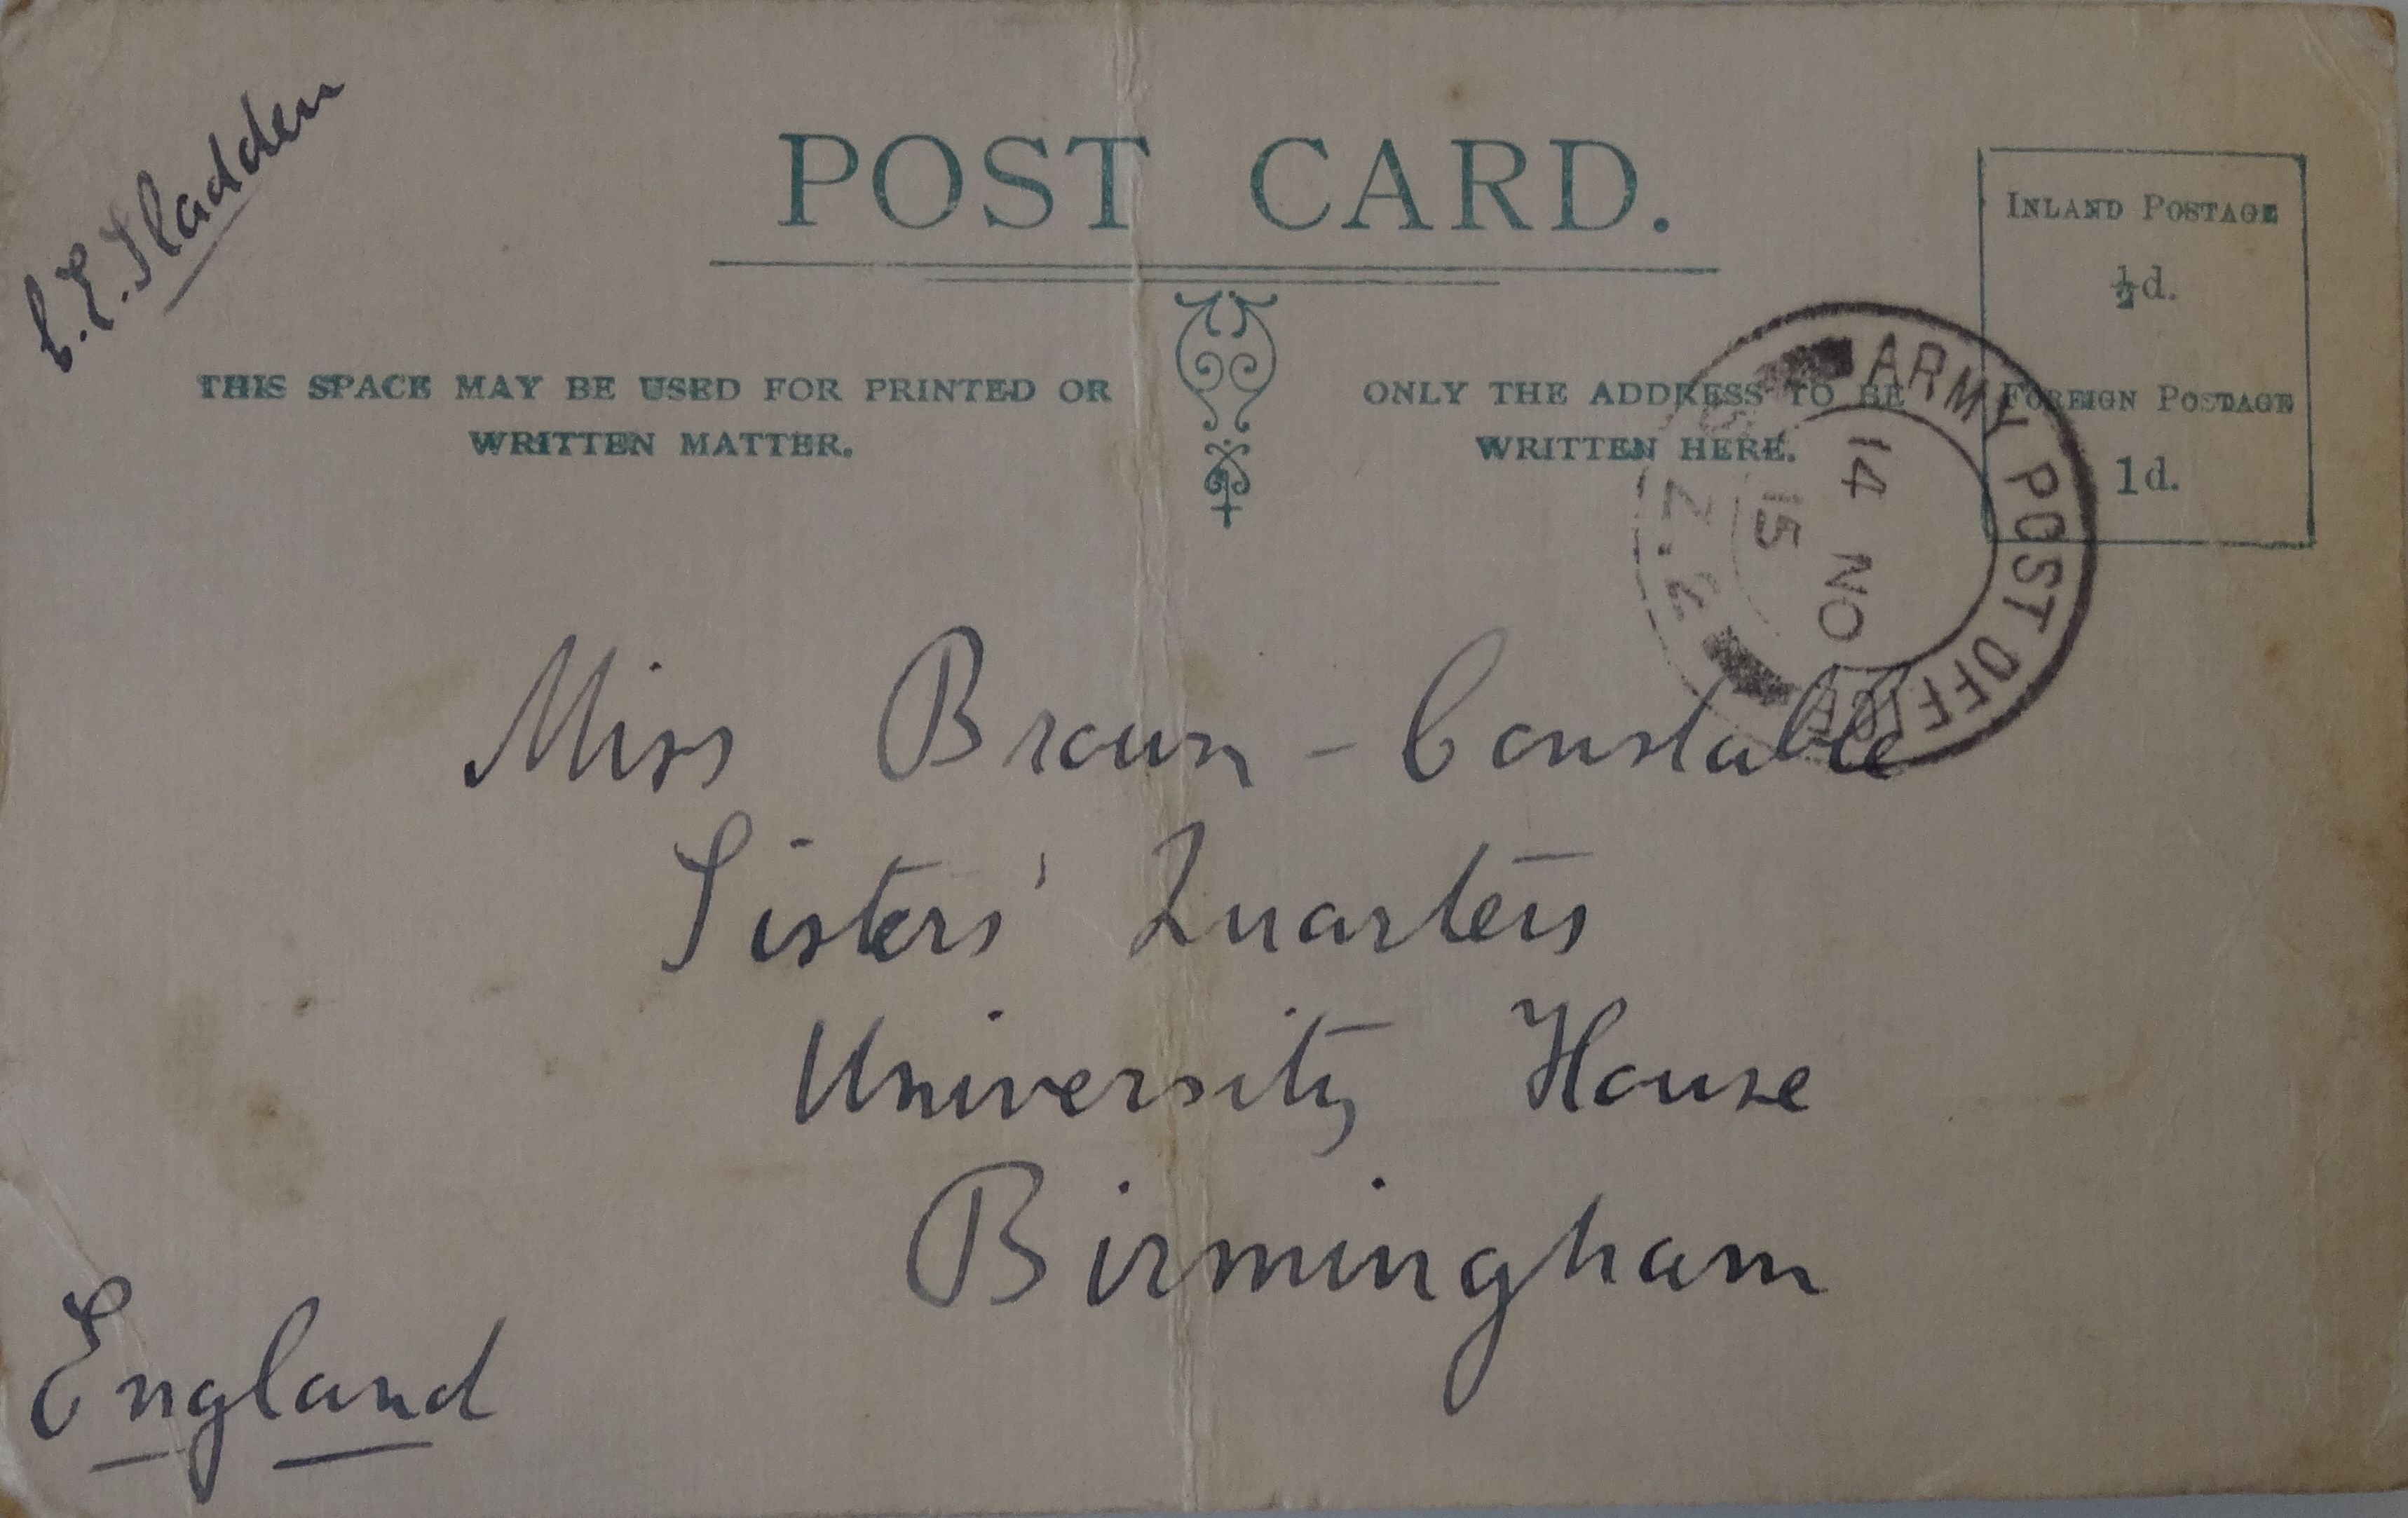 C.E. Sladden
POST CARD.
INLAND POSTAGE
½d.
FOREIGN POSTAGE
1d.
THIS SPACE MAY BE USED FOR PRINTED OR
WRITTEN MATTER.
ONLY THE ADDRESS TO BE
WRITTEN HERE.
ARMY POST OFFICE
14 NO
15
Z.2
Miss Broun-Constable
Sisters' Quarters
University House
Birmingham
England